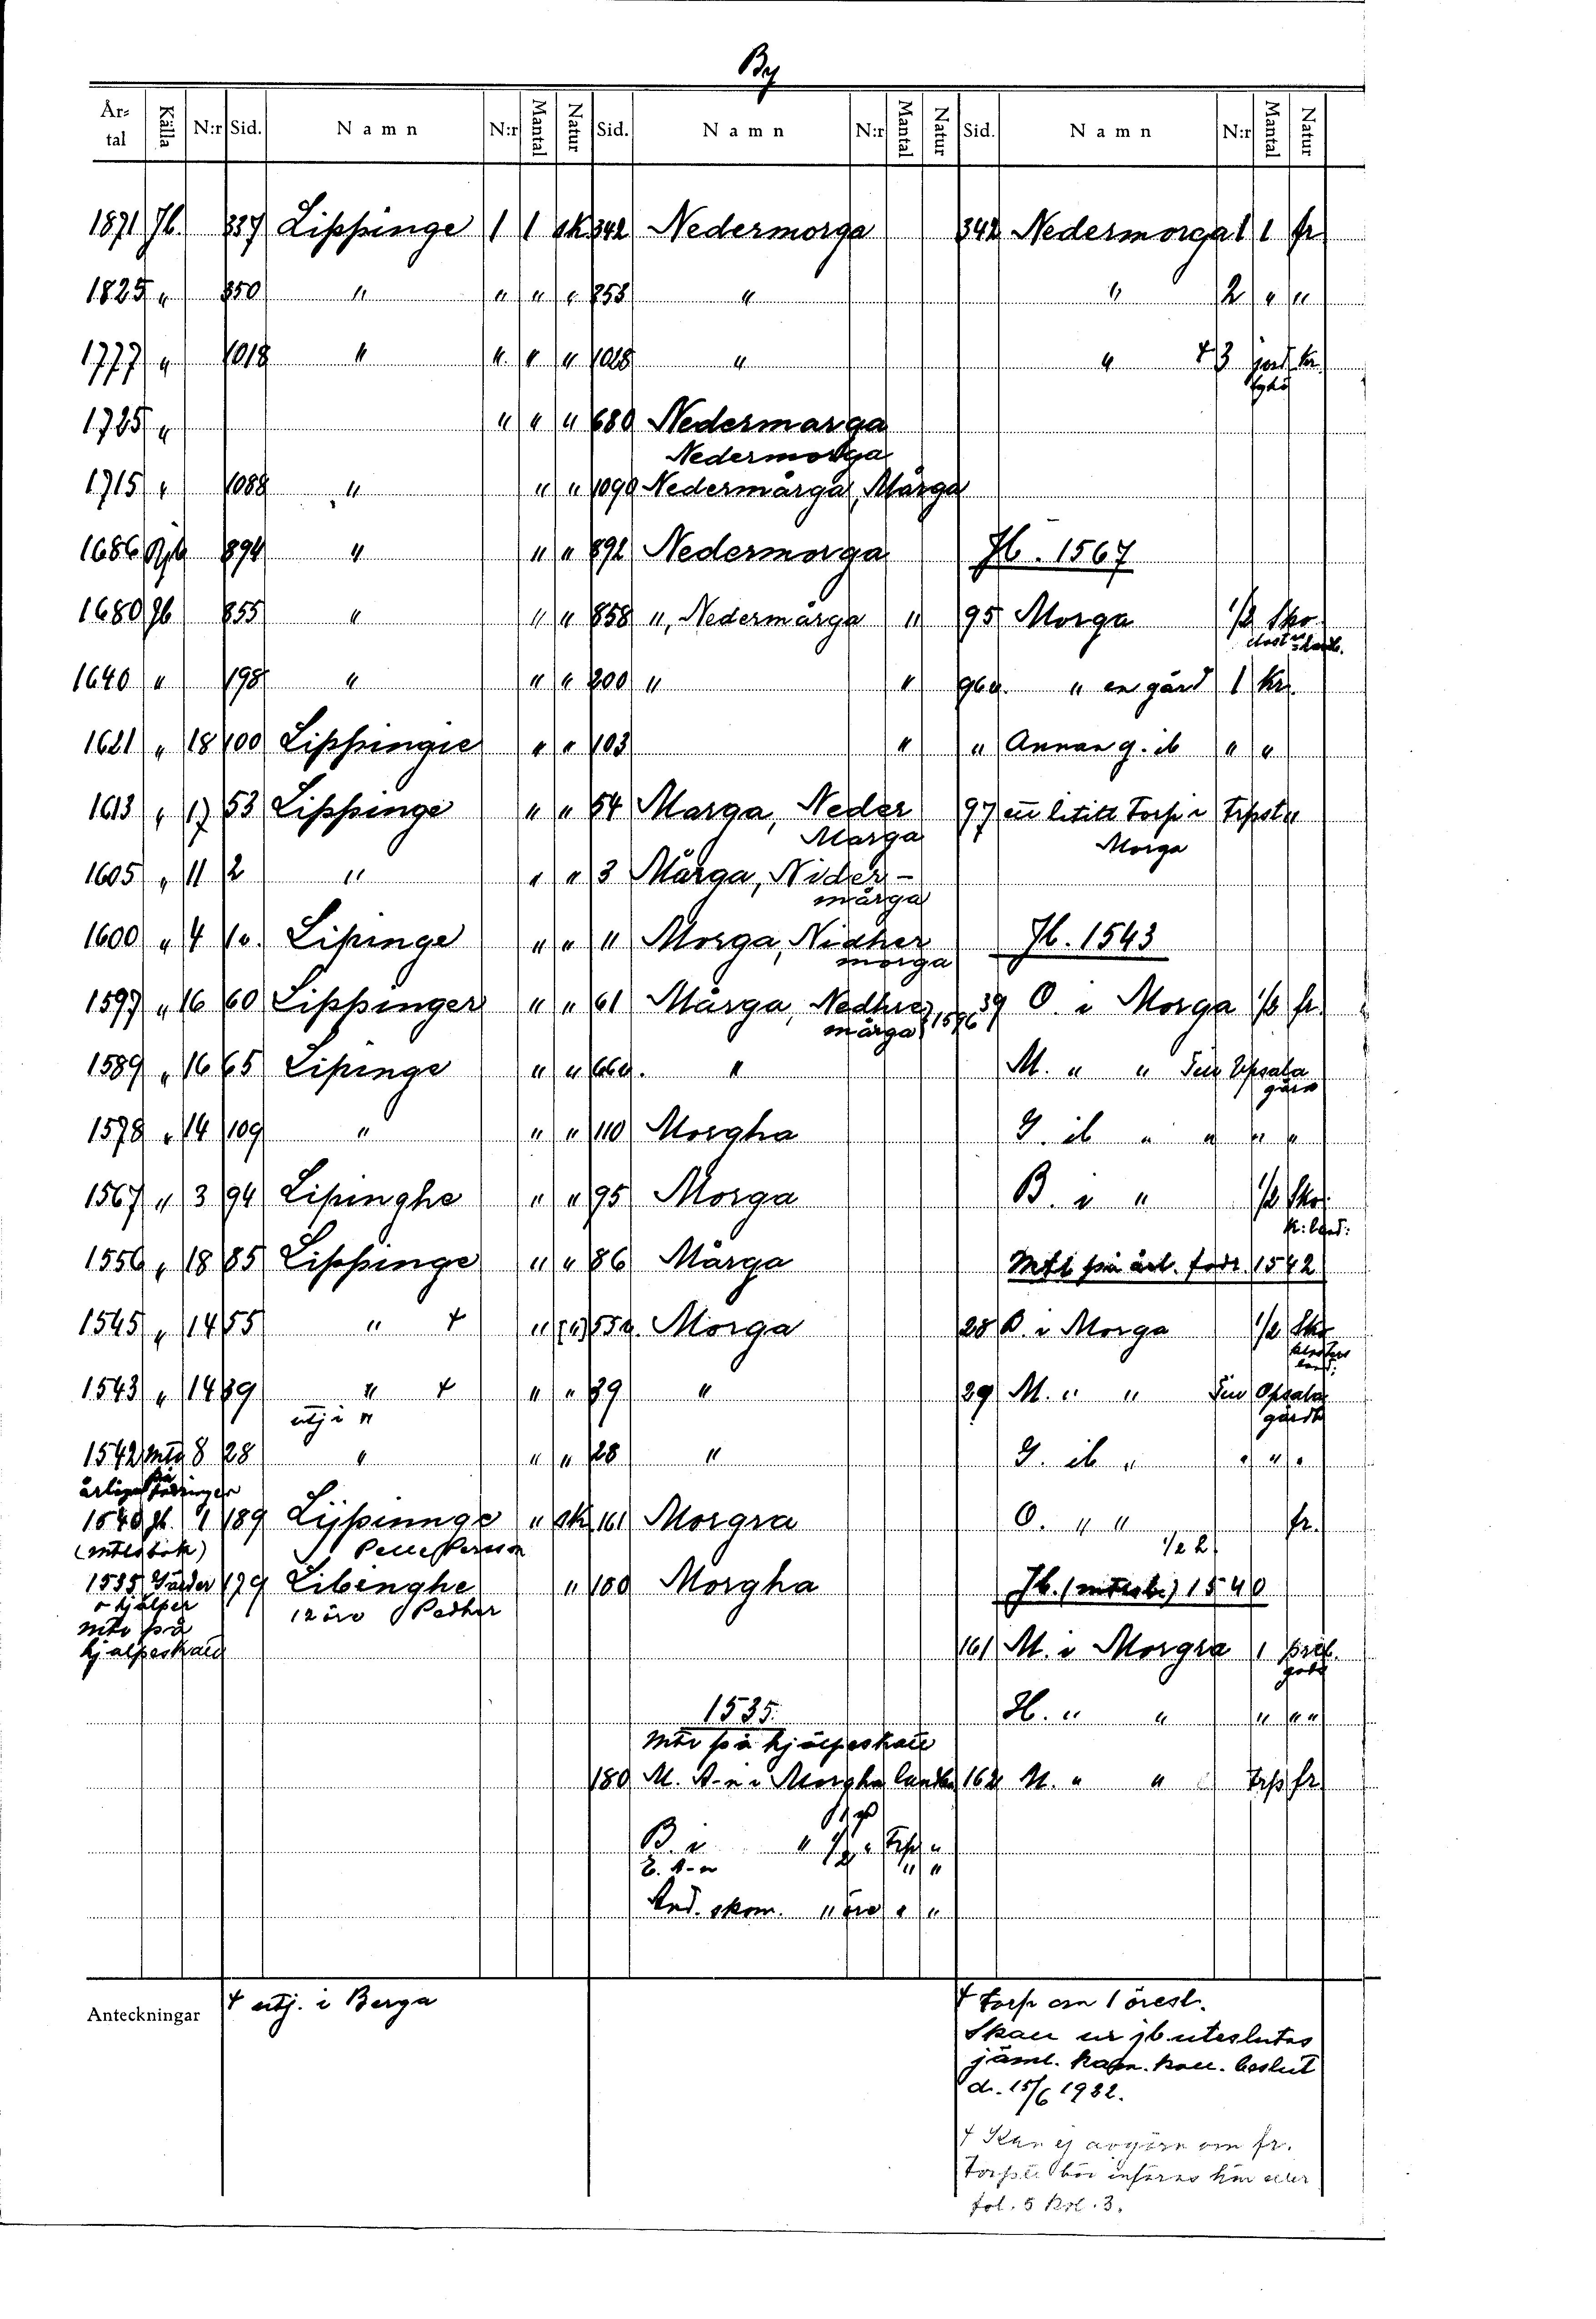 By
År-tal Källa N:r Sid. Namn N:r Mantal Natur Sid. Namn N:r Mantal Natur Sid. Namn N:r Mantal Natur
1871 Jb. 337 Lippinge 1 1 sk 342 Nedermorga 342 Nedermorga 1 1 fr
1825 " 350 " " " " 353 " " 2 " "
1777 " 1018 " " " " 1028 " " + 3 jord kr.
1725 " " " " 680 Nedermarga
Nedermorga
1715 " 1088 " " " 1090 Nedermårga, Mårga
1686 894 " " " 892 Nedermorga Jb. 1567
1680 Jb 855 " " " 858 ", Nedermårga " 95 Morga 1/2 Sko
1640 " 198 " " " 200 " " 96 u. " en gård 1 kr.
1621 " 18 100 Lippingie " " 103 " " Annan g. ib " "
1613 " 17 53 Lippinge " " 54 Marga, Neder 97 ett lititt Torp i Trpst "
Marga Morga
1605 " 11 2 " " " 3 Mårga, Nider-
mårga
1600 " 4 1 o. Lipinge " " " Morga, Nidher Jb. 1543
morga
1597 " 16 60 Lippinger " " 61 Mårga, Nedhre 39 O. i Morga 1/2 fr.
mårga 1596
1589 " 16 65 Lipinge " " 66 u. " M. " " Upsala
gård
1578 " 14 109 " " " 110 Morgha G. ib " " " "
1567 " 3 94 Lipinghe " " 95 Morga B. i " 1/2 Sko
k: land:
1556 " 18 85 Lippinge " " 86 Mårga Mtl på årl. fodr. 1542
1545 " 14 55 " + " (") 55 u. Morga 28 B. i Morga 1/2 Sko
klosters
land:
1543 " 14 39 " + " " 39 " 29 M. " " Opsala
utj i " gårdh
1542 mtl 8 28 " " " 28 " G. ib " " " "
på
årliga fodringar
1540 jb. 1 189 Lijpinnge " sk 161 Morgra O. " " fr.
(mtlsbok) Pelle Persson 1/2 2
1535 Gärder 179 Libinghe " 180 Morgha Jb. (mtlsb.) 1540
o hjälper 12 öre Pedher
mtl på
hjälpeskatt 161 M. i Morgra 1 preb.
godz
1535. H. " " " " "
Mtl på hjälpeskatt
180 M. A-n i Morgha 162 N. " " Trp fr
B. i " 1/2 " Trp "
E. A-n " "
And. skom. " öre " "
Anteckningar + utj. i Berga + Torp om 1 öresl.
Skall ur jb uteslutas
jäml. kam. koll. beslut
d. 15/6 1932.
+ Kan ej avgöra om fr.
Torpet bör införas här eller
fol. 5 kol. 3.